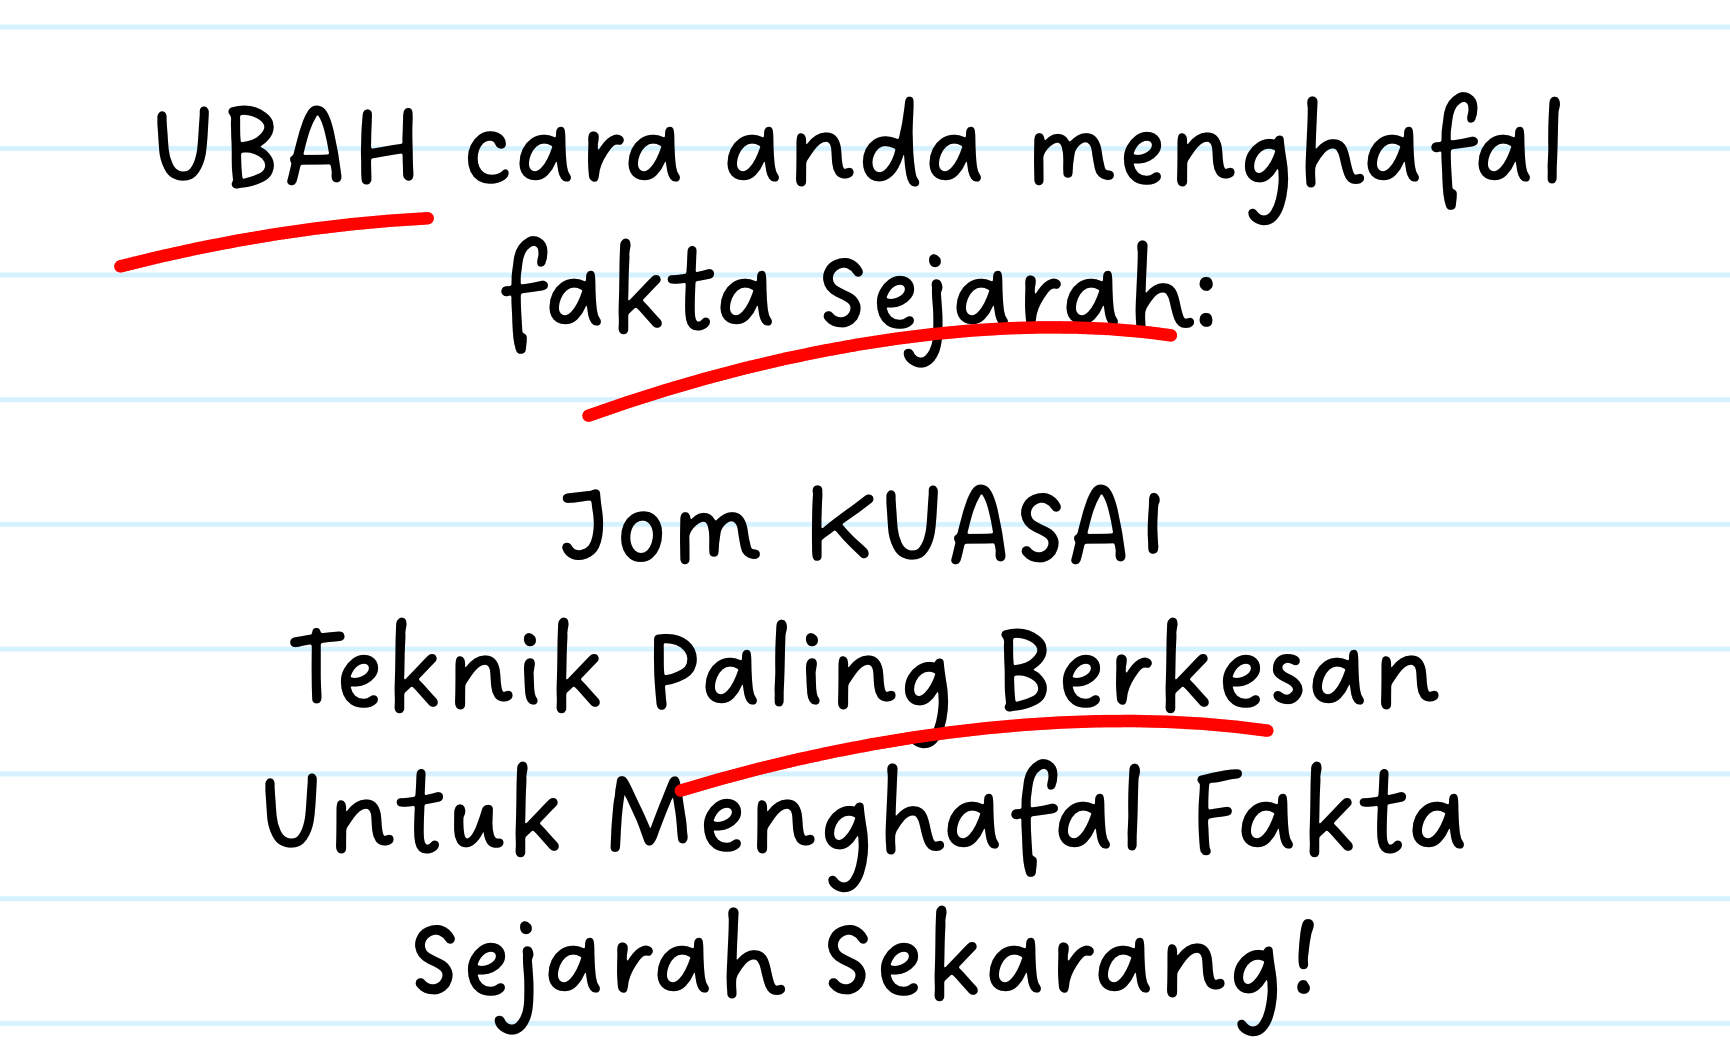 UBAH cara anda menghafal
fakta Sejarah:
Jom KUASAI
Teknik Paling Berkesan
Untuk Menghafal Fakta
Sejarah Sekarang!